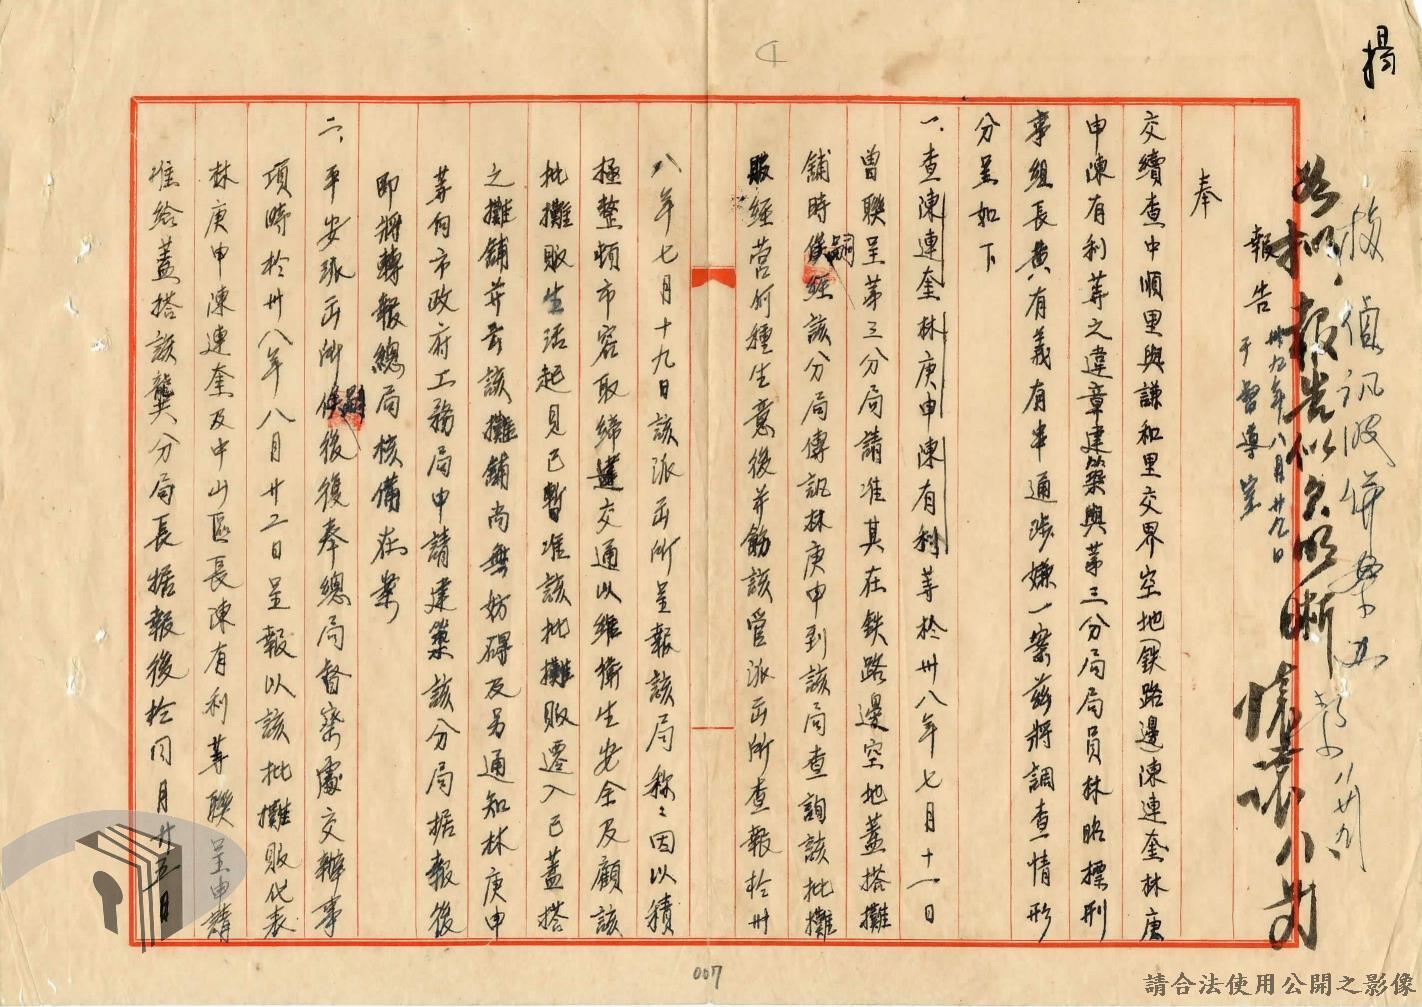 揚
報告
卅九年八月廿九日
于督導室
奉
交續查中順里與謙和里交界空地鉄路邊陳連奎林庚
申陳有利等之違章建築與第三分局局員林昭標刑
事組長黃有義有串通涉嫌一案茲將調查情形
分呈如下
一、查陳連奎林庚申陳有利等於卅八年七月十一日
曾聯呈第三分局請准其在鉄路邊空地蓋搭攤
舖時嗣經該分局傳訊林庚申到該局查詢該批攤
販經營何種生意後并飭該管派出所查報於卅
八年七月十九日該派出所呈報該局称：因以積
極整頓市容取締違交通以維衛生安全及顧該
批攤販生活起見已暫准該批攤販遷入已蓋搭
之攤舖并云該攤舖尚無妨碍及另通知林庚申
等向市政府工務局申請建築該分局据報後
即將轉報總局核備在案
二、平安派出所嗣後復奉總局督察處交辦事
項時於卅八年八月廿二日呈報以該批攤販代表
林庚申陳連奎及中山區長陳有利等聯呈申請
准給蓋搭該龔分局長据報後於同月廿五日
007
請合法使用公開之影像